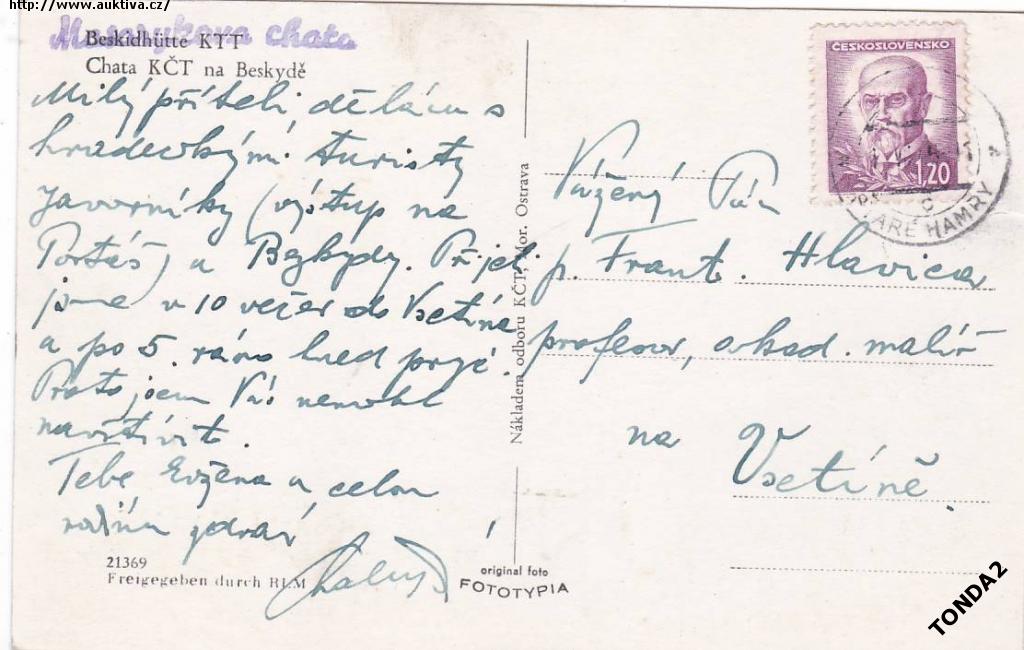 http://www.auktiva.cz/
Masarykova chata
Beskidhütte KTT
Chata KČT na Beskydě
Milý příteli, dělám s
hradeckými turisty
Javorníky (výstup na
Portáš) a Bezkydy. Přijeli
jsme v 10 večer do Vsetína
a po 5. ráno hned pryč.
Proto jsem Vás nemohl
navštívit.
Tebe Evžena a celou
rodinu zdraví
21369
Freigegeben durch RLM
Nákladem odboru KČT, Mor. Ostrava
original foto
FOTOTYPIA
ČESKOSLOVENSKO
1,20
STARÉ HAMRY
Vážený Pán
p. Frant. Hlavica
profesor, akad. malíř
na Vsetíně
TONDA2